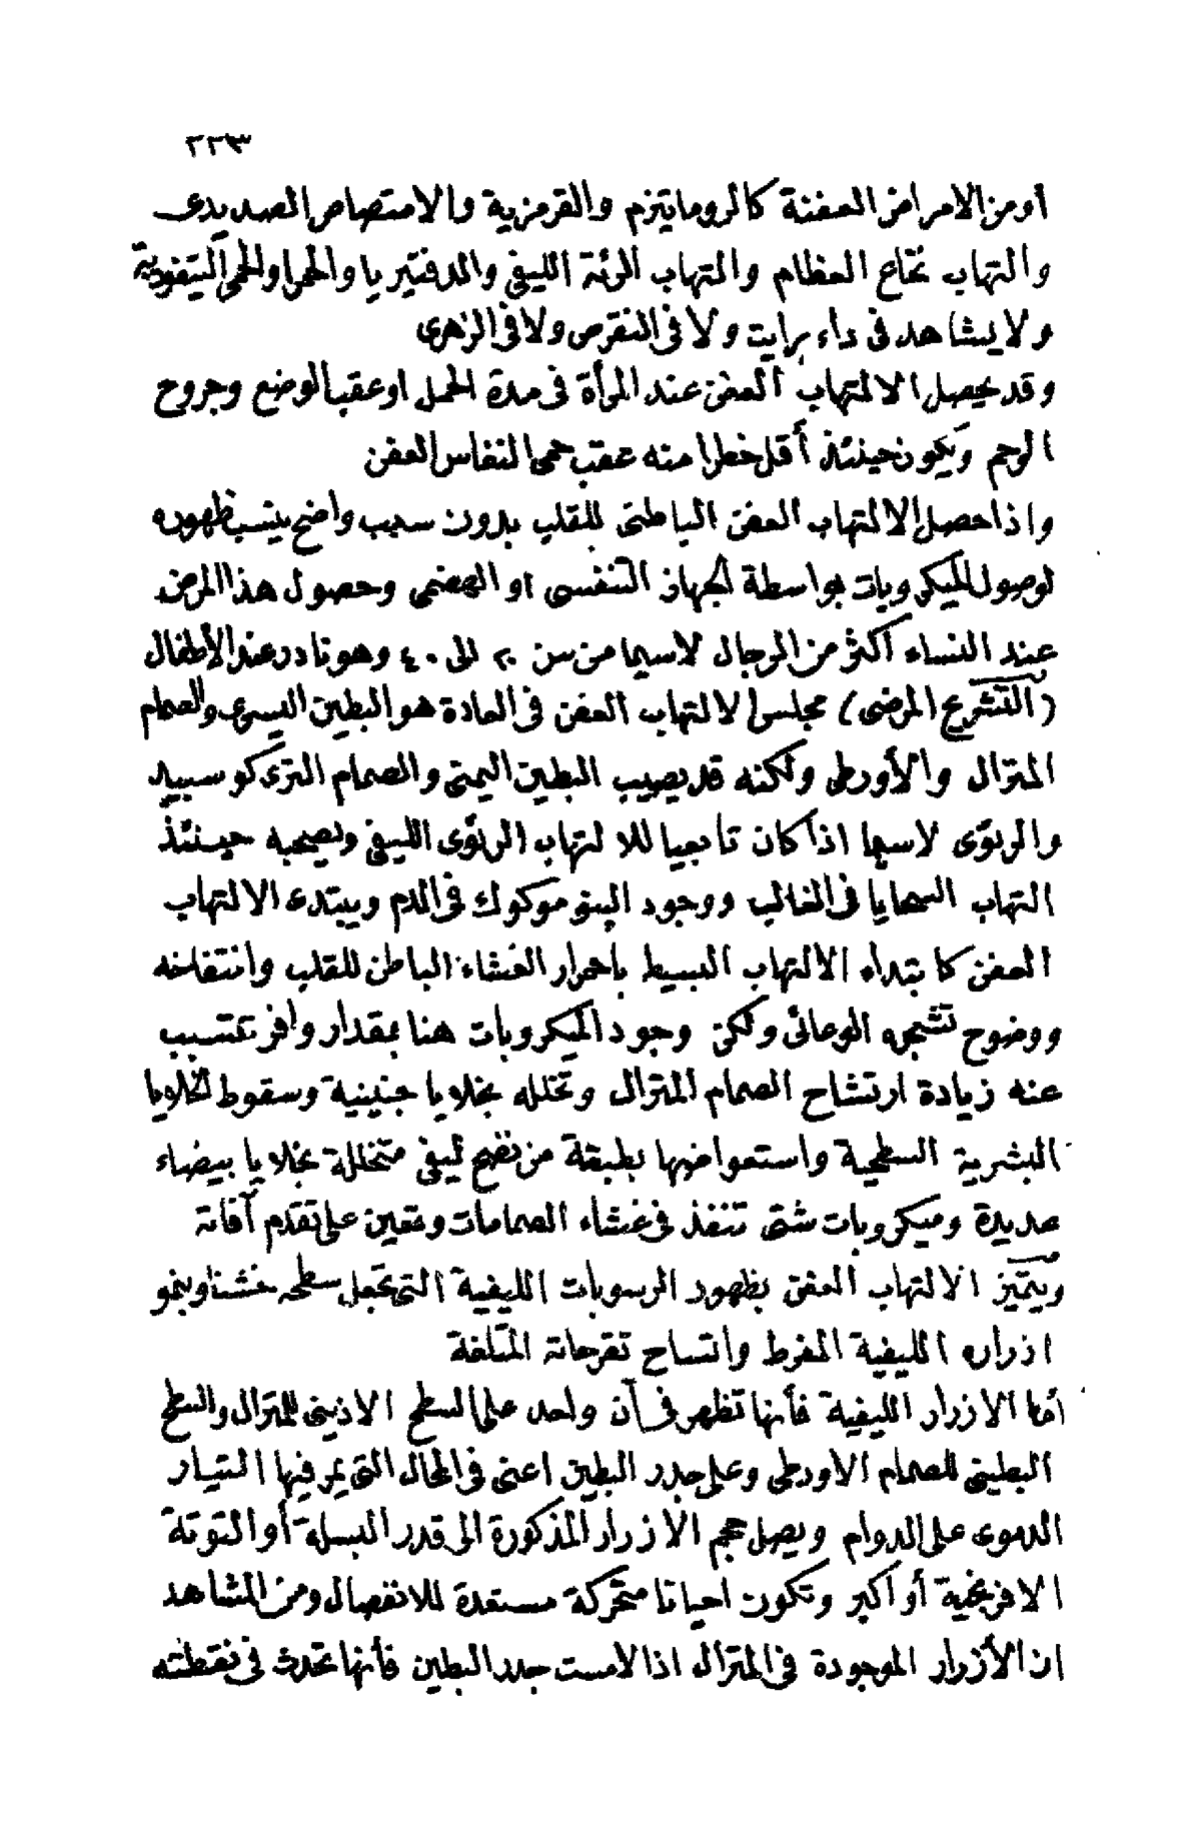 ٢٢٣
أو من الامراض العفنة كالروماتيزم والقرمزية والامتصاص الصديدى
والتهاب نخاع العظام والتهاب الرئة الليفى والدفتيريا والحمرا والحمى التيفودية
ولا يشاهد فى داء برايت ولا فى النقرص ولا فى الزهرى
وقد يحصل الالتهاب العفن عند المرأة فى مدة الحمل او عقب الوضع وجروح
الرحم ويكون حينئذ أقل خطرا منه عقب حمى النفاس العفن
واذا حصل الالتهاب العفن الباطنى للقلب بدون سبب واضح ينسب ظهوره
لوصول الميكروبات بواسطة الجهاز التنفسى او الهضمى وحصول هذا المرض
عند النساء أكثر من الرجال لاسيما من سن ٢٠ الى ٤٠ وهو نادر عند الأطفال
(التشريح المرضى) مجلس الالتهاب العفن فى العادة هو البطين اليسرى والصمام
المترال والأورطى ولكنه قد يصيب البطين اليمنى والصمام التريكوسبيد
والرئوى لاسيما اذا كان تابعيا للالتهاب الرئوى الليفى ويصحبه حينئذ
التهاب السحايا فى الغالب ووجود البنوموكوك فى الدم ويبتدء الالتهاب
العفن كابتداء الالتهاب البسيط باحمرار الغشاء الباطن للقلب وانتفاخه
ووضوح تشجره الوعائى ولكن وجود الميكروبات هنا بمقدار وافر تتسبب
عنه زيادة ارتشاح الصمام المترال وتخلله بخلايا جنينية وسقوط الخلايا
البشرية السطحية واستعواضها بطبقة من نضح ليفى متخللة بخلايا بيضاء
صديدة وميكروبات شتى تنفذ فى غشاء الصمامات وتعين على تقدم آفاته
ويتميز الالتهاب العفن بظهور الرسوبات الليفية التى تجعل سطحه خشنا وبنمو
ازراره الليفية المفرط واتساح تقرحاته المتلفة
أما الازرار الليفية فأنها تظهر فى آن واحد على السطح الاذينى للمترال والسطح
البطينى للصمام الاورطى وعلى جدر البطين اعنى فى المحال التى يمر فيها التيار
الدموى على الدوام ويصل حجم الازرار المذكورة الى قدر البسلة أو التوتة
الافرنجية أو أكبر وتكون احيانا متحركة مستعدة للانفصال ومن المشاهد
ان الأزرار الموجودة فى المترال اذا لامست جدر البطين فأنها تحدث فى نقطته